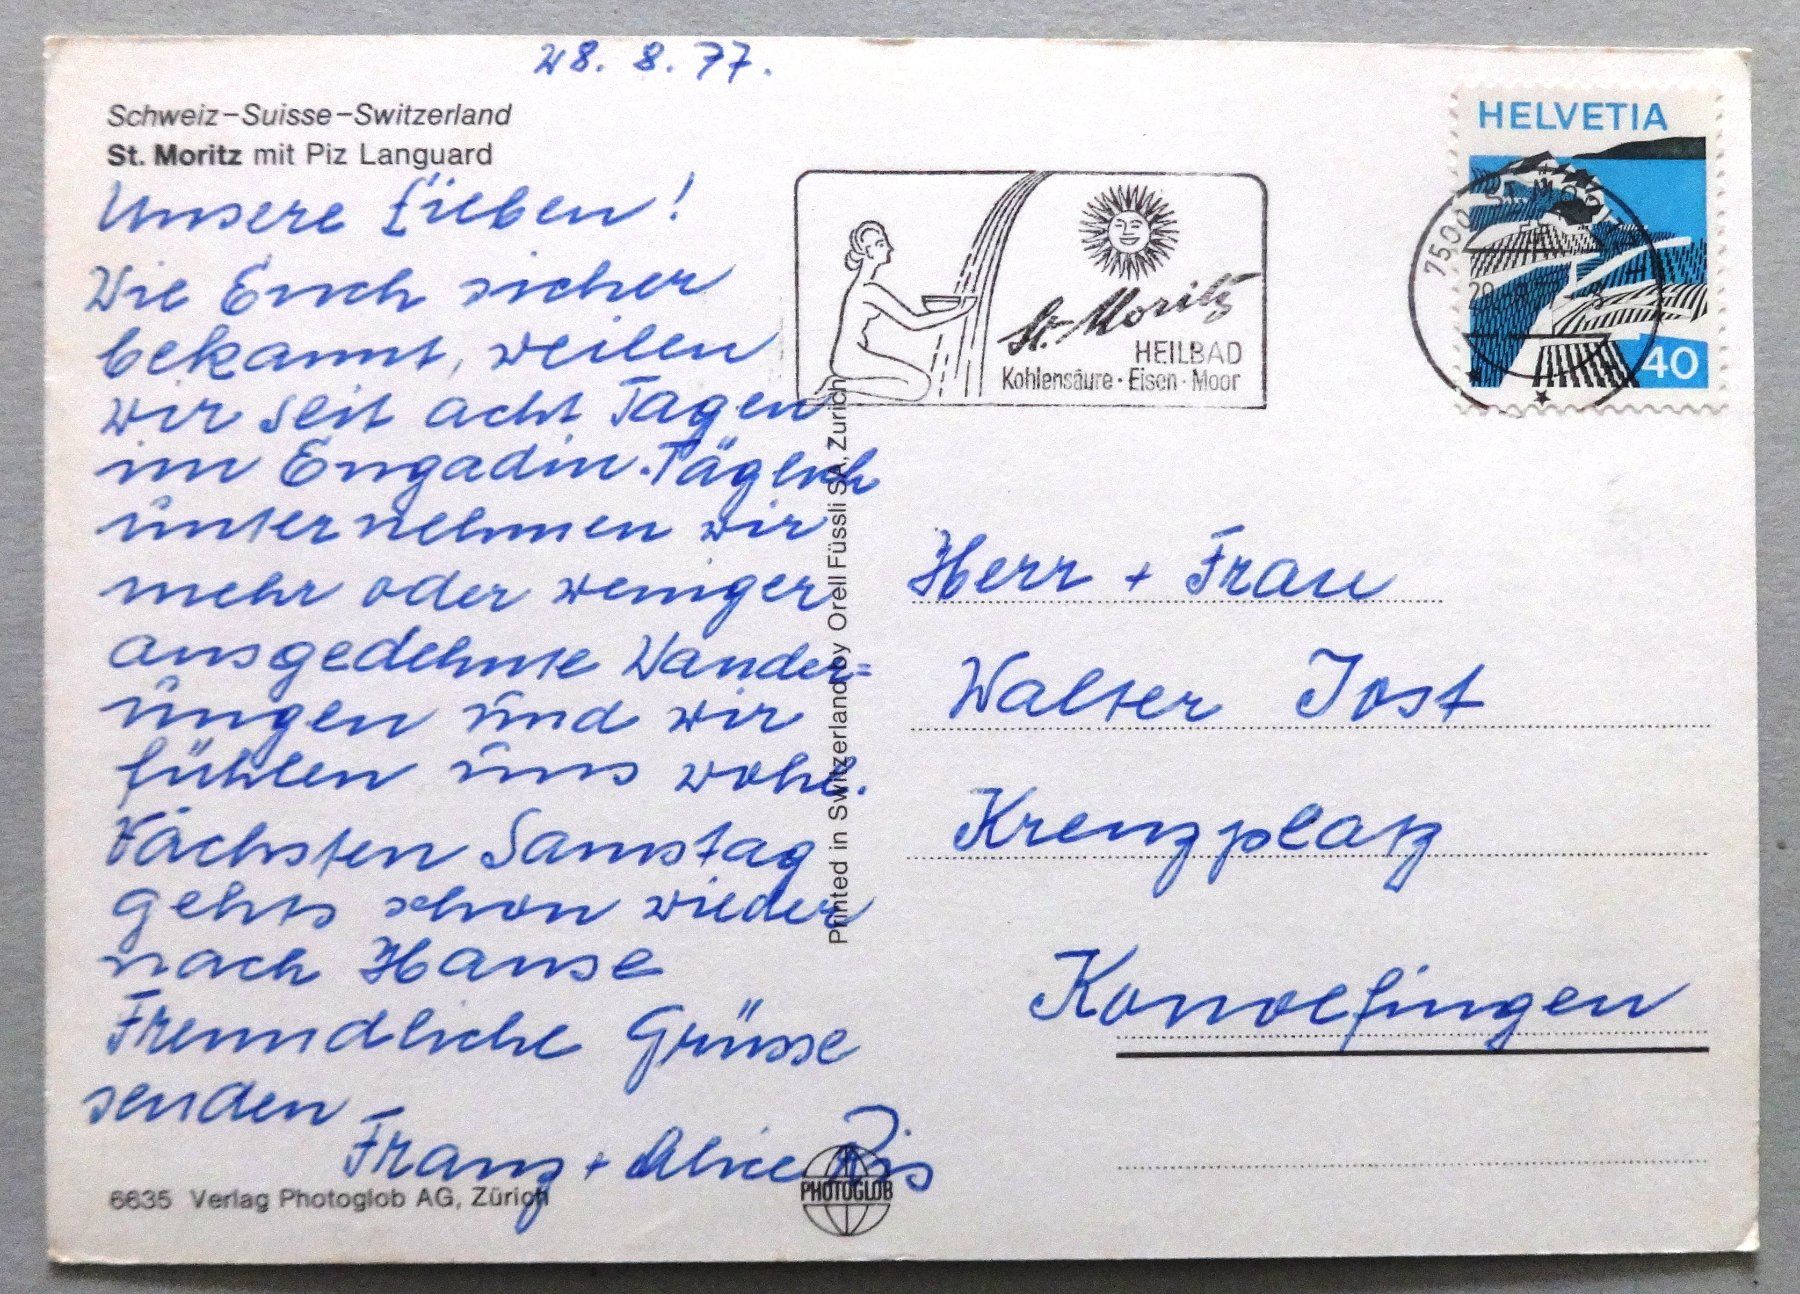 28. 8. 77.
Schweiz-Suisse-Switzerland
St. Moritz mit Piz Languard
Unsere Lieben!
Wie Euch sicher
bekannt, weilen
wir seit acht Tagen
im Engadin. Täglich
unternehmen wir
mehr oder weniger
ausgedehnte Wander=
ungen und wir
fühlen uns wohl.
Nächsten Samstag
gehts schon wieder
nach Hause
Freundliche Grüsse
senden
Franz + Alice Ris
6635 Verlag Photoglob AG, Zürich
PHOTOGLOB
Printed in Switzerland by Orell Füssli SA, Zürich
St. Moritz
HEILBAD
Kohlensäure · Eisen · Moor
HELVETIA
40
7500 ST. MORITZ
Herr + Frau
Walter Jost
Kreuzplatz
Konolfingen